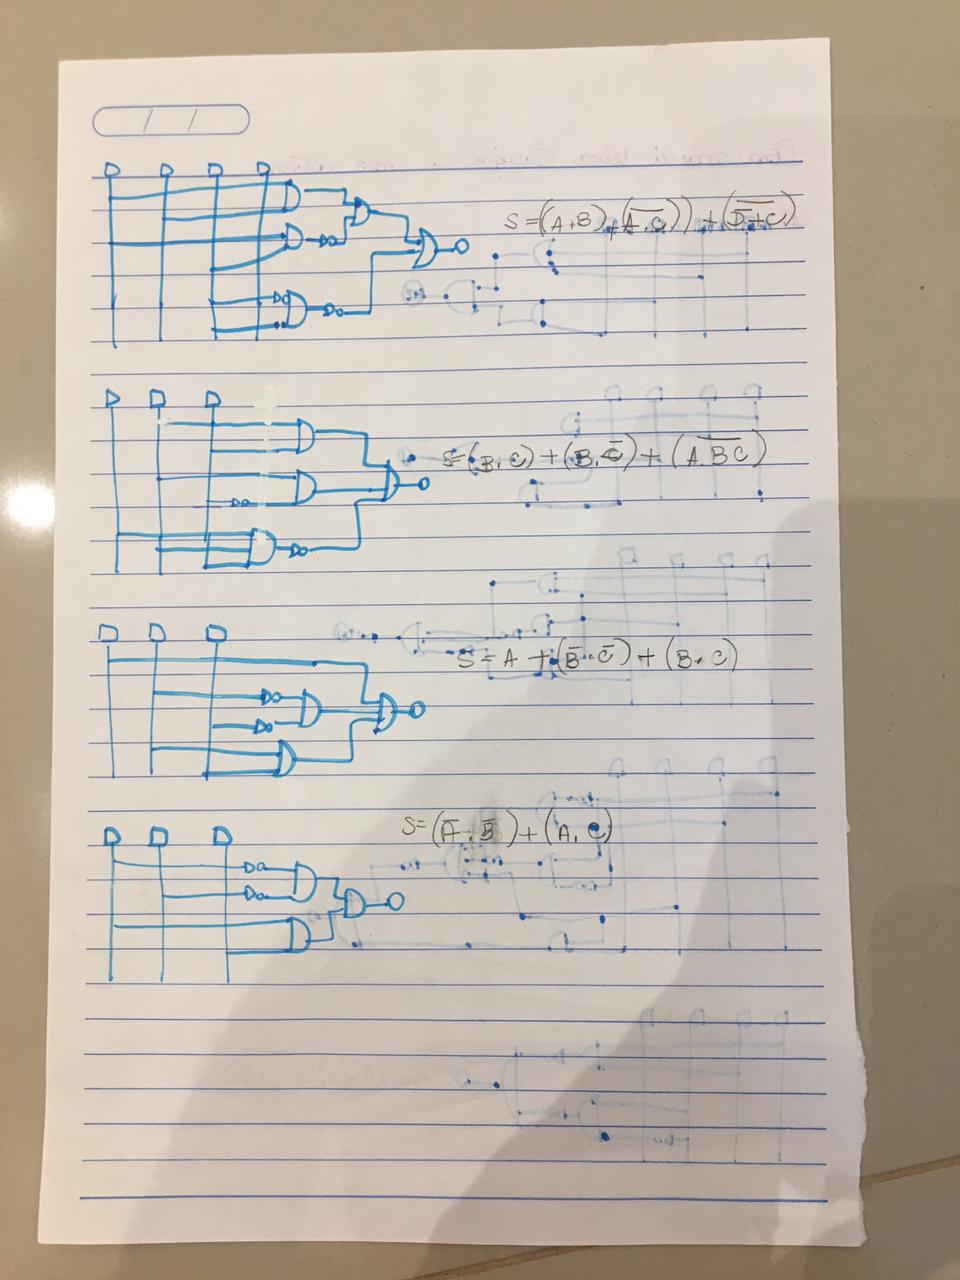 / /
S = (A+B) + (A̅.̅C̅)) + (D̅̅+̅C̅)
S = (B.C) + (B.C̅) + (A̅ ̅B̅ ̅C̅)
S = A + (B̅.C̅) + (B.C)
S = (A̅.B̅) + (A.C)